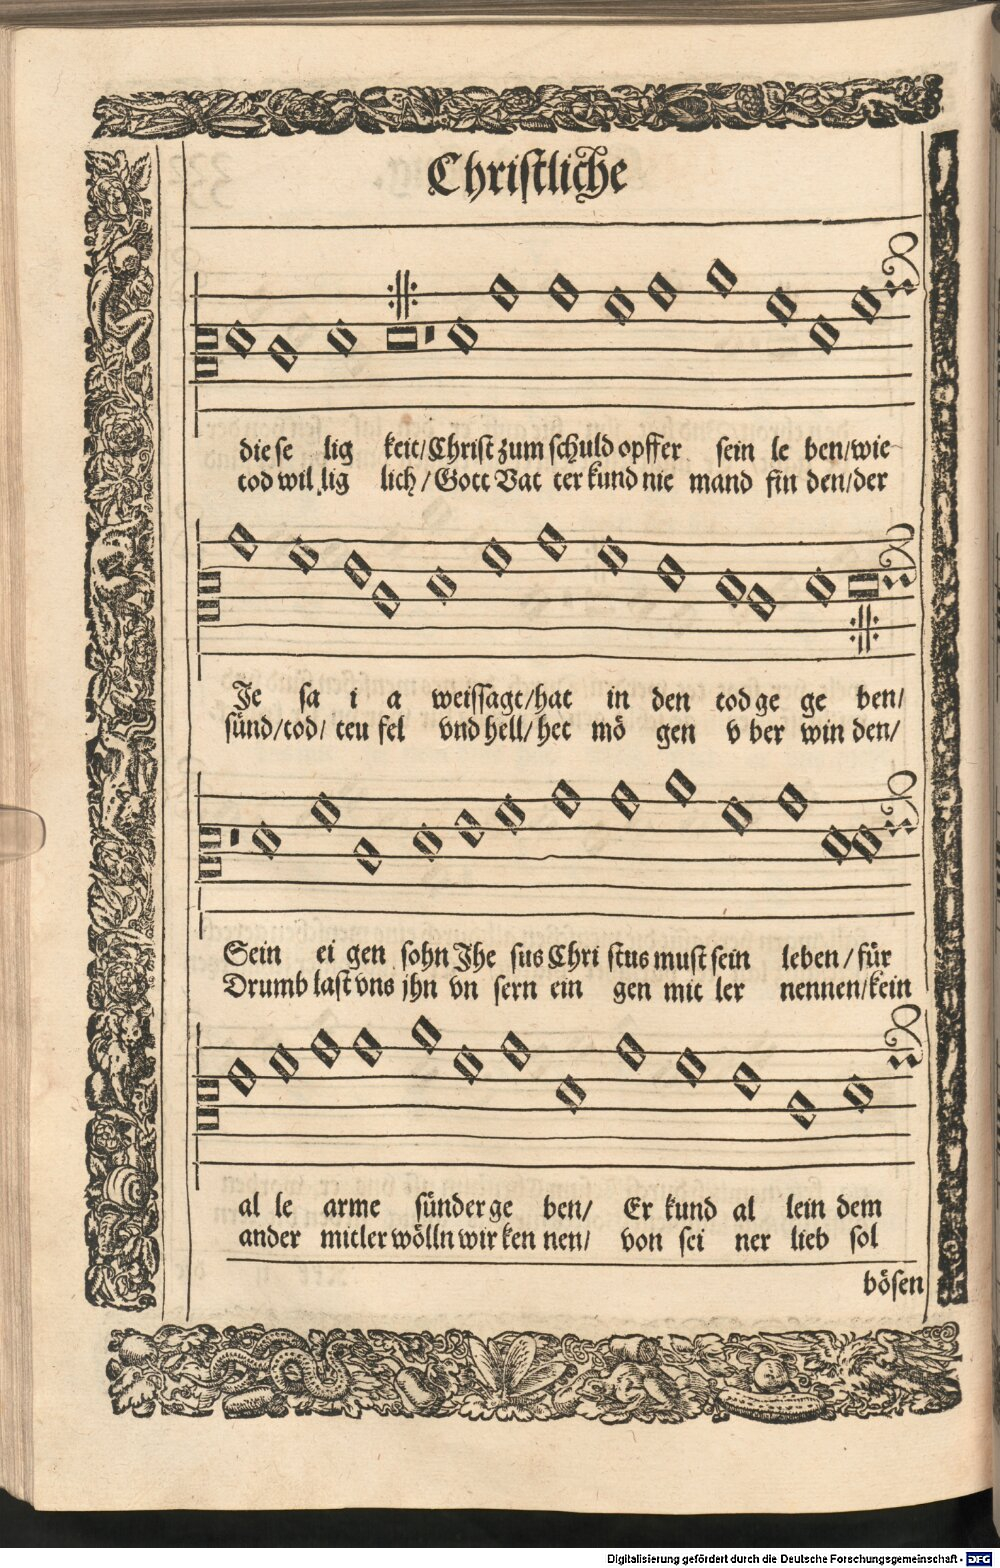 Christliche
die se lig keit/Christ zum schuld opffer sein le ben/wie
tod wil lig lich/Gott Vat ter kund nie mand fin den/der
Je sa i a weissagt/hat in den tod ge ge ben/
sünd/tod/ teu fel vnd hell/het mö gen v ber win den/
Sein ei gen sohn Jhe sus Chri stus must sein leben/für
Drumb last vns jhn vn sern ein gen mit ler nennen/kein
al le arme sünder ge ben/ Er kund al lein dem
ander mitler wölln wir ken nen/ von sei ner lieb sol
bösen
Digitalisierung gefördert durch die Deutsche Forschungsgemeinschaft - DFG